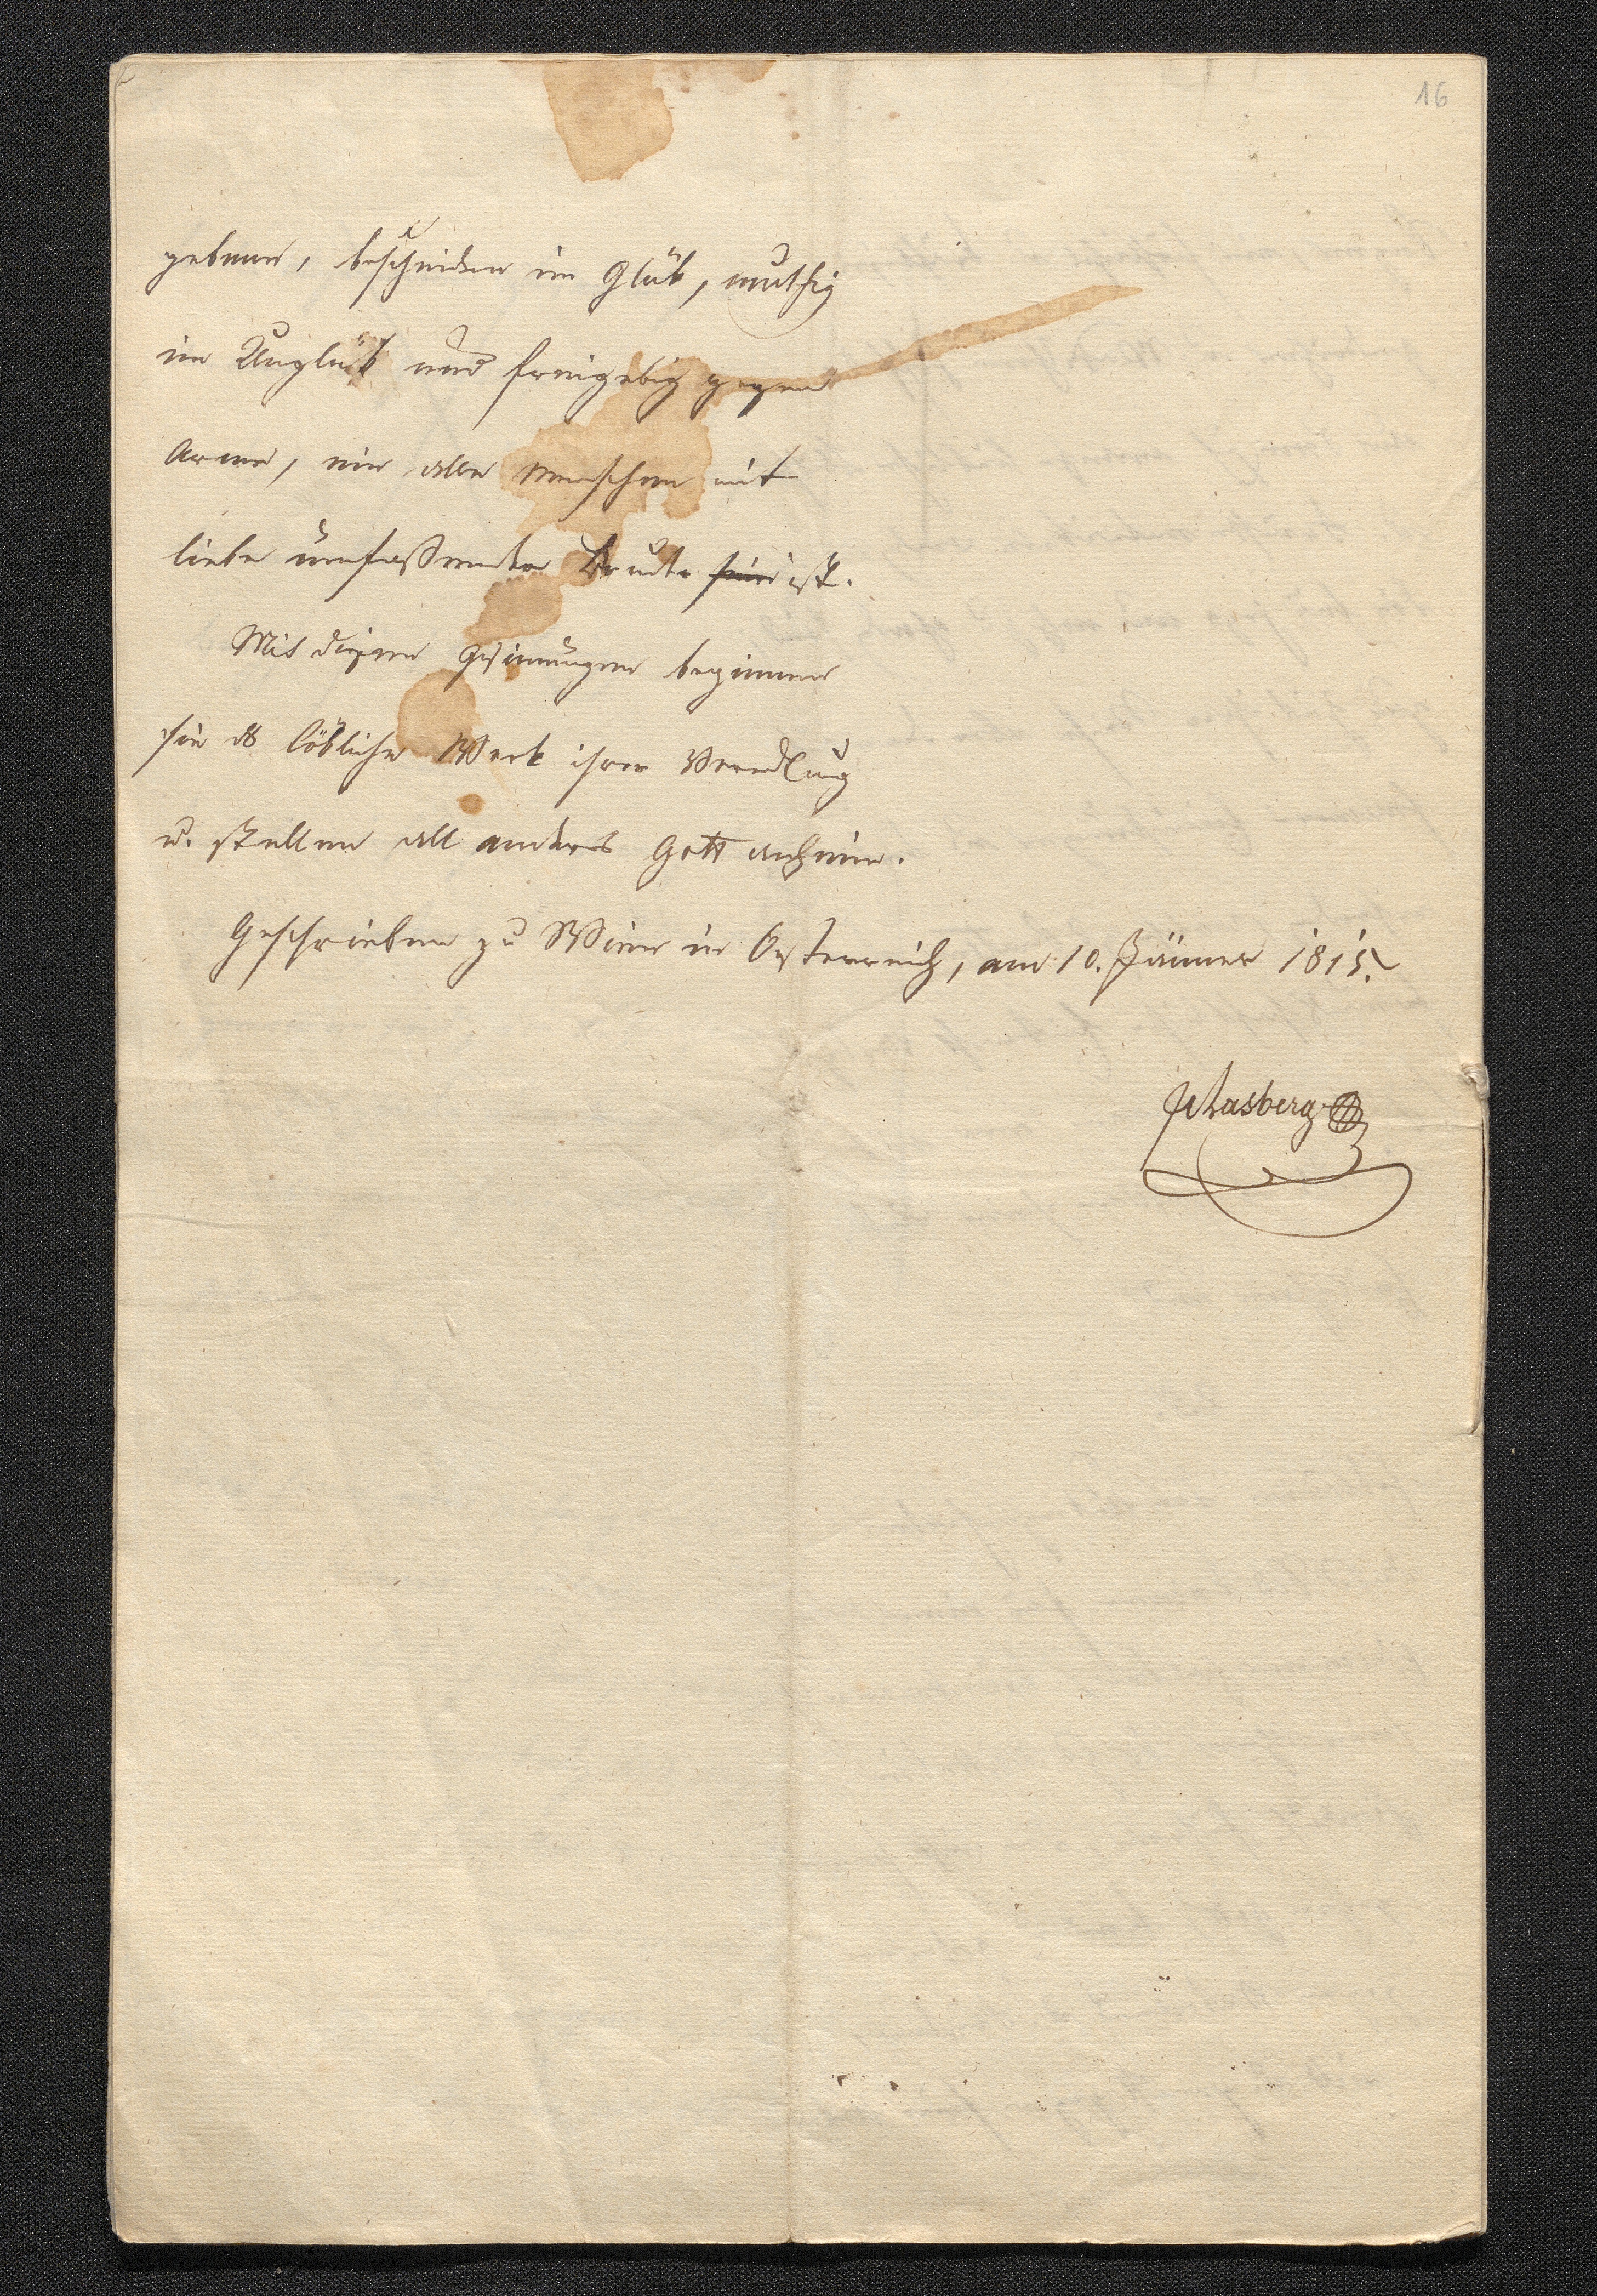 16
gebener, bescheiden im Glük, muthig
im Unglük und freigebig gegen
Arme, ein alle Menschen mit
liebe umfassender Bruder sein ist.
Mit diesen Gesinnungen beginnen
sie ds löbliche Werk ihrer Veredlung
u. stellen all anders Gott anheim.
Geschrieben zu Wien in Oesterreich, am 10. Jänner 1815.
JvLasberg